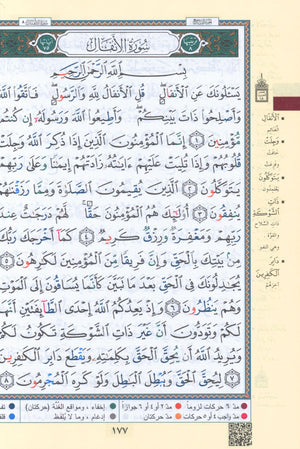 سُورَةُ الأَنفَالِ
بِسْمِ اللَّهِ الرَّحْمَٰنِ الرَّحِيمِ
يَسْـَٔلُونَكَ عَنِ الْأَنفَالِ ۖ قُلِ الْأَنفَالُ لِلَّهِ وَالرَّسُولِ ۖ فَاتَّقُوا اللَّهَ
وَأَصْلِحُوا ذَاتَ بَيْنِكُمْ ۖ وَأَطِيعُوا اللَّهَ وَرَسُولَهُ إِن كُنتُم
مُّؤْمِنِينَ ١ إِنَّمَا الْمُؤْمِنُونَ الَّذِينَ إِذَا ذُكِرَ اللَّهُ وَجِلَتْ
قُلُوبُهُمْ وَإِذَا تُلِيَتْ عَلَيْهِمْ ءَايَٰتُهُ زَادَتْهُمْ إِيمَٰنًا وَعَلَىٰ رَبِّهِمْ
يَتَوَكَّلُونَ ٢ الَّذِينَ يُقِيمُونَ الصَّلَوٰةَ وَمِمَّا رَزَقْنَٰهُمْ
يُنفِقُونَ ٣ أُولَٰئِكَ هُمُ الْمُؤْمِنُونَ حَقًّا ۚ لَّهُمْ دَرَجَٰتٌ عِندَ
رَبِّهِمْ وَمَغْفِرَةٌ وَرِزْقٌ كَرِيمٌ ٤ كَمَا أَخْرَجَكَ رَبُّكَ مِن
بَيْتِكَ بِالْحَقِّ وَإِنَّ فَرِيقًا مِّنَ الْمُؤْمِنِينَ لَكَٰرِهُونَ ٥
يُجَٰدِلُونَكَ فِي الْحَقِّ بَعْدَ مَا تَبَيَّنَ كَأَنَّمَا يُسَاقُونَ إِلَى الْمَوْتِ
وَهُمْ يَنظُرُونَ ٦ وَإِذْ يَعِدُكُمُ اللَّهُ إِحْدَى الطَّائِفَتَيْنِ أَنَّهَا
لَكُمْ وَتَوَدُّونَ أَنَّ غَيْرَ ذَاتِ الشَّوْكَةِ تَكُونُ لَكُمْ
وَيُرِيدُ اللَّهُ أَن يُحِقَّ الْحَقَّ بِكَلِمَٰتِهِ وَيَقْطَعَ دَابِرَ الْكَٰفِرِينَ
٧ لِيُحِقَّ الْحَقَّ وَيُبْطِلَ الْبَٰطِلَ وَلَوْ كَرِهَ الْمُجْرِمُونَ ٨
الأَنْفَالِ
الغنائم
وَجِلَتْ
يَتَوَكَّلُونَ
ذَاتِ
الشَّوْكَةِ
ذات السلاح
دَابِرَ
الْكَافِرِينَ
آخرهم
مدّ ٦ حركات لزوماً
مدّ ٢ أو ٤ أو ٦ جوازاً
إخفاء، ومواقع الغُنَّة (حركتان)
مدّ حركتان
إدغام، وما لا يُلفظ
١٧٧